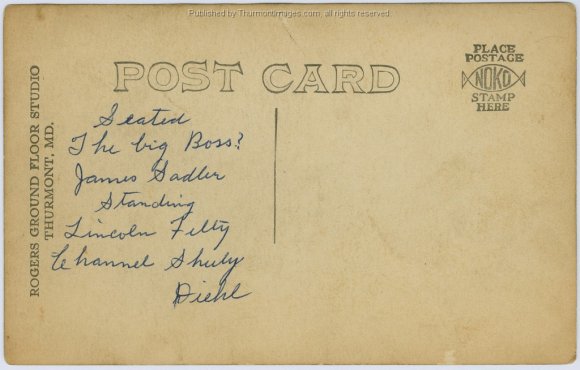 Published by Thurmontimages.com, all rights reserved.
POST CARD
PLACE
POSTAGE
NOKO
STAMP
HERE
ROGERS GROUND FLOOR STUDIO
THURMONT, MD.
Seated
The big Boss?
James Sadler
Standing
Lincoln Filty
Channel Shuly
Diehl